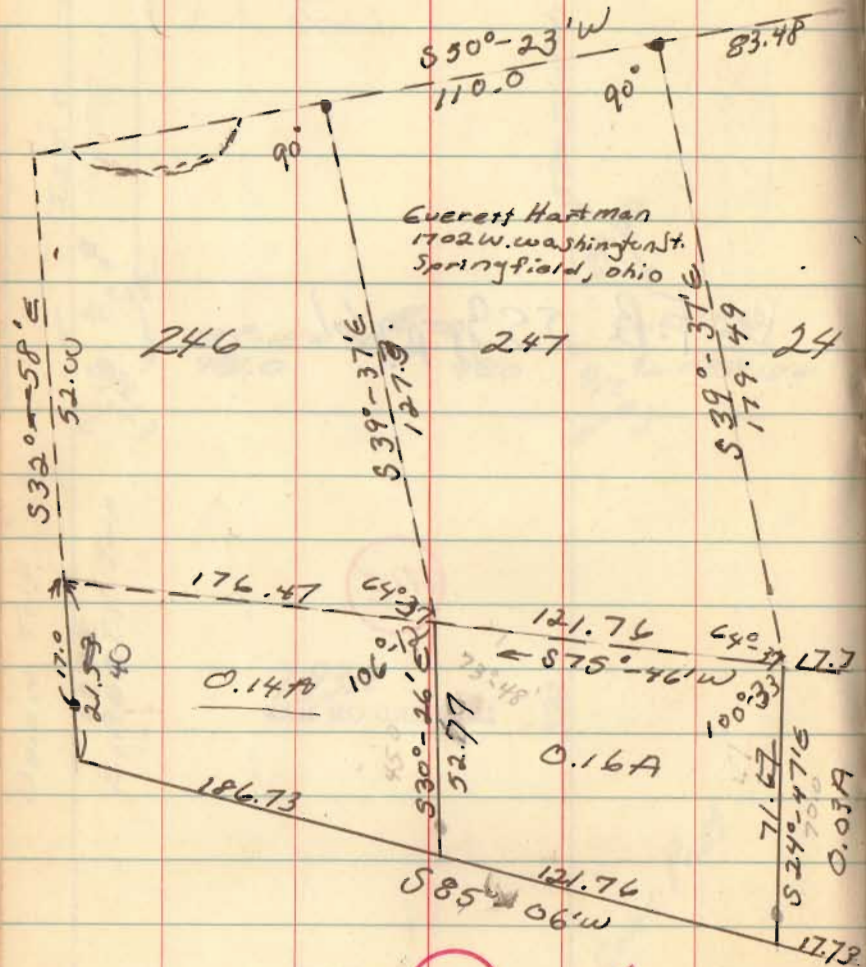 S 50°-23'W
110.0
83.48
90°
90°
Everett Hartman
1702 W. Washington St.
Springfield, Ohio
S 32°-58'E
52.00
246
S 39°-37'E
127.9
247
S 39°-37'E
179.49
24
176.47
64°37
121.76
64°-37
17.7
← S 75°-46'W
17.0
40
0.14A
106°-12
S30°-26'E
52.77
73°-48'
100°-33
0.16A
71.67
S 24°-47'E
70.0
0.03A
45.0
186.73
121.76
S 85° 06'W
17.73